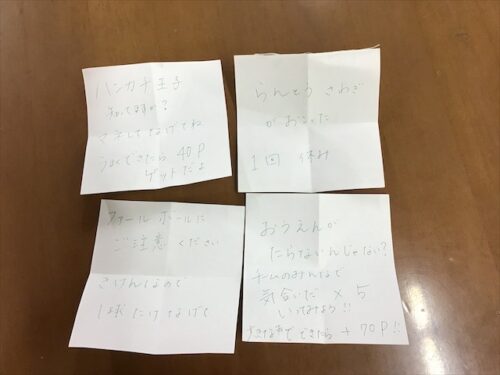 ハンカチ王子
知ってますか?
マネしてなげてね
うまくできたら 40P
ゲットだよ
らんとう さわぎ
がおこった
1回 休み
フォールボールに
ご注意ください
きけんなので
1球だけなげて
おうえんが
たらないんじゃない?
チームのみんなで
気合いだ × 5
いってみよう!!
できたら + 70P!!